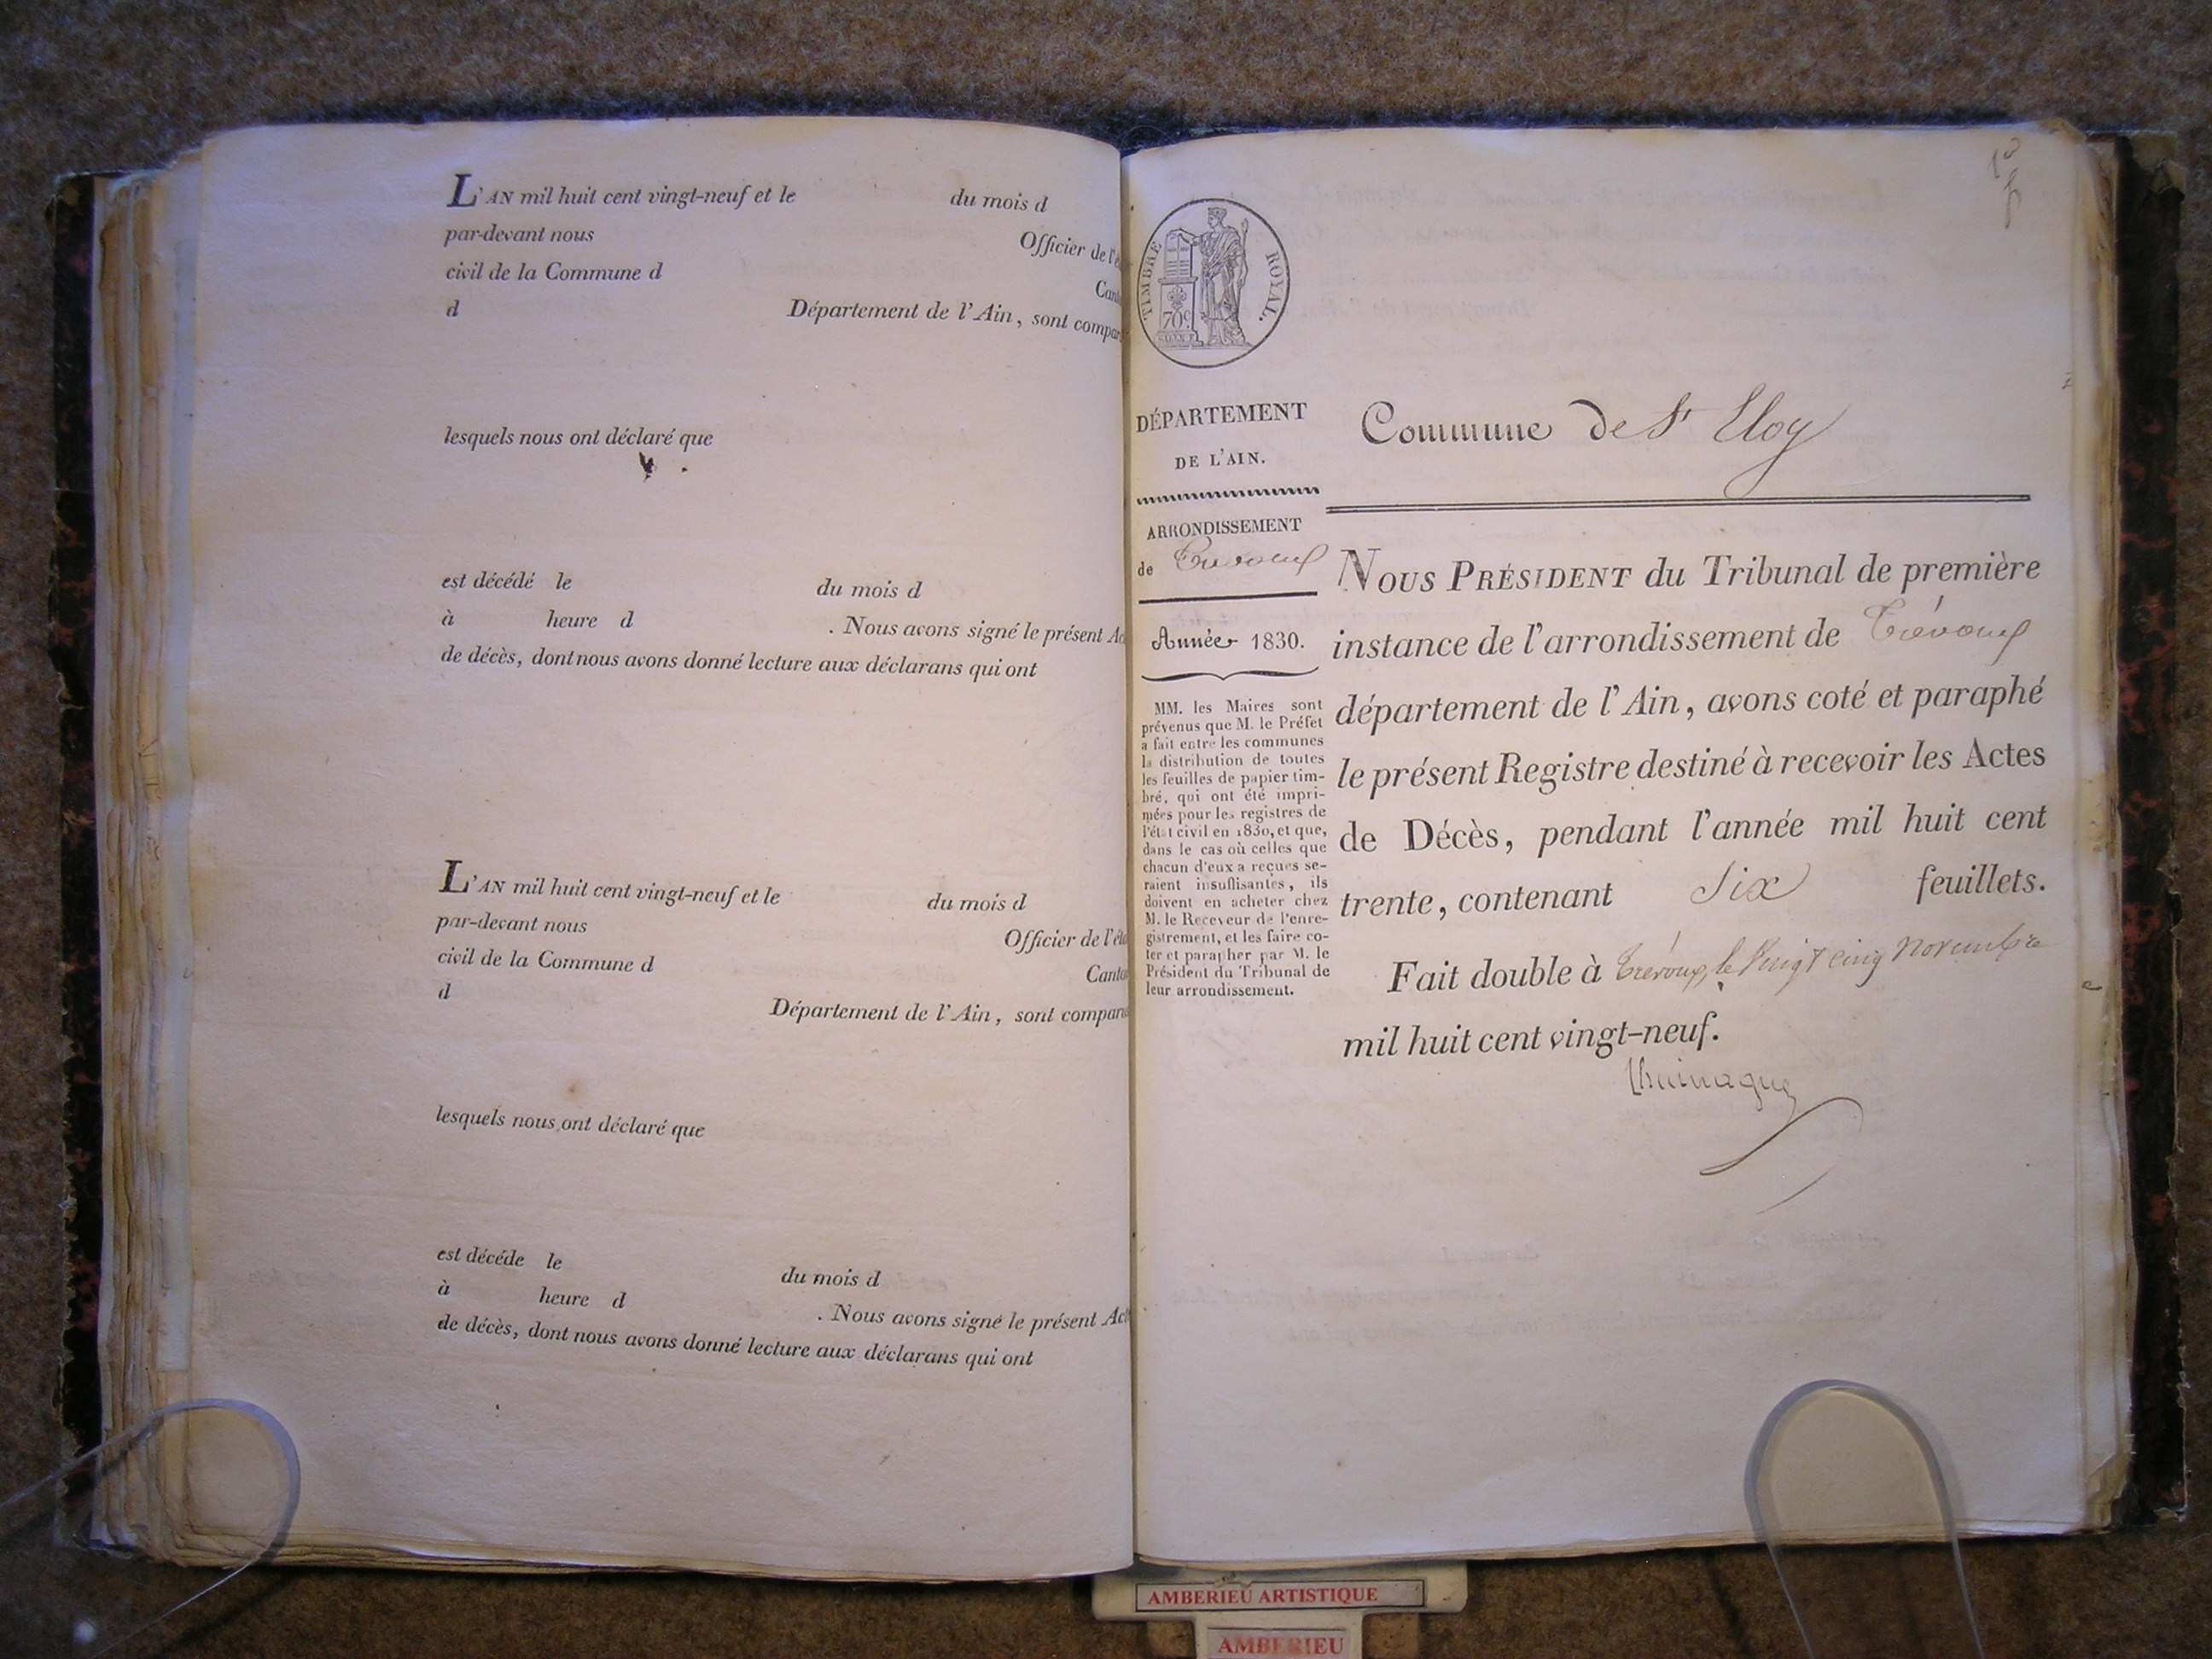 L'AN mil huit cent vingt-neuf et le du mois d
par-devant nous Officier de l'é
civil de la Commune d Cant
d Département de l'Ain, sont compar
lesquels nous ont déclaré que
est décédé le du mois d
à heure d . Nous avons signé le présent Ac
de décès, dont nous avons donné lecture aux déclarans qui ont
L'AN mil huit cent vingt-neuf et le du mois d
par-devant nous Officier de l'éta
civil de la Commune d Canto
d Département de l'Ain, sont compar
lesquels nous ont déclaré que
est décéde le du mois d
à heure d . Nous avons signé le présent Act
de décès, dont nous avons donné lecture aux déclarans qui ont
TIMBRE ROYAL.
70c
DÉPARTEMENT
DE L'AIN.
ARRONDISSEMENT
de Trévoux
Année 1830.
MM. les Maires sont
prévenus que M. le Préfet
a fait entre les communes
la distribution de toutes
les feuilles de papier tim-
bré, qui ont été impri-
mées pour les registres de
l'état civil en 1830, et que,
dans le cas où celles que
chacun d'eux a reçues se-
raient insuffisantes, ils
doivent en acheter chez
M. le Receveur de l'enre-
gistrement, et les faire co-
ter et parapher par M. le
Président du Tribunal de
leur arrondissement.
Commune de St Eloy
NOUS PRÉSIDENT du Tribunal de première
instance de l'arrondissement de Trévoux
département de l'Ain, avons coté et paraphé
le présent Registre destiné à recevoir les Actes
de Décès, pendant l'année mil huit cent
trente, contenant Six feuillets.
Fait double à Trévoux, le Vingt cinq novembre
mil huit cent vingt-neuf.
AMBERIEU ARTISTIQUE
AMBERIEU